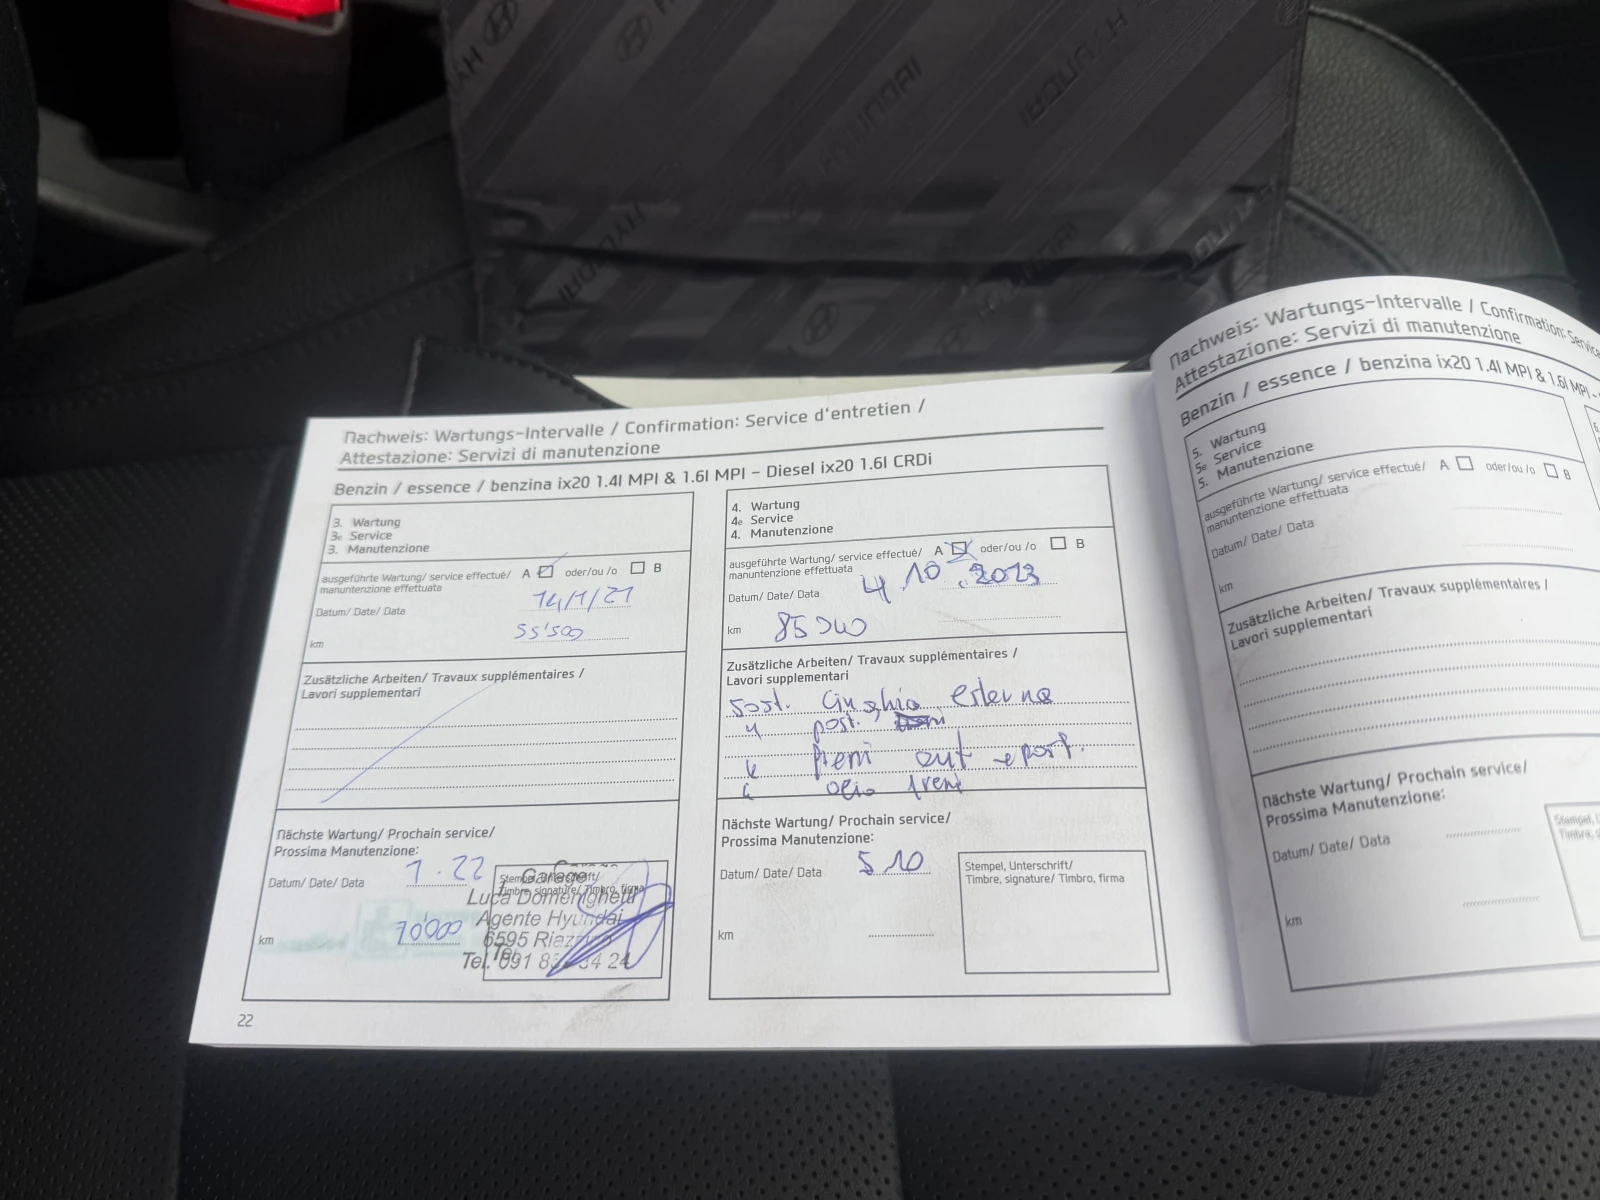 HYUNDAI
HYUNDAI
HYUNDAI
HYUNDAI
Nachweis: Wartungs-Intervalle / Confirmation: Service d'entretien /
Attestazione: Servizi di manutenzione
Benzin / essence / benzina ix20 1.4l MPI & 1.6l MPI – Diesel ix20 1.6l CRDi
3. Wartung
3e Service
3. Manutenzione
ausgeführte Wartung/ service effectué/ A oder/ou /o B
manuntenzione effettuata
Datum/ Date/ Data 14/1/21
km 55'500
Zusätzliche Arbeiten/ Travaux supplémentaires /
Lavori supplementari
Nächste Wartung/ Prochain service/
Prossima Manutenzione:
Datum/ Date/ Data 1.22
km 70'000
Stempel, Unterschrift/
Timbre, signature/ Timbro, firma
Garage
Luca Domenighetti
Agente Hyundai
6595 Riazzino
Tel. 091 8 34 24
22
4. Wartung
4e Service
4. Manutenzione
ausgeführte Wartung/ service effectué/ A oder/ou /o B
manuntenzione effettuata
Datum/ Date/ Data 4.10.2023
km 85
Zusätzliche Arbeiten/ Travaux supplémentaires /
Lavori supplementari
Sost. Cinghia esterna
" post.
" freni ant e post.
" olio freni
Nächste Wartung/ Prochain service/
Prossima Manutenzione:
Datum/ Date/ Data 5 10
km
Stempel, Unterschrift/
Timbre, signature/ Timbro, firma
Nachweis: Wartungs-Intervalle / Confirmation: Service
Attestazione: Servizi di manutenzione
Benzin / essence / benzina ix20 1.4l MPI & 1.6l MPI -
5. Wartung
5e Service
5. Manutenzione
ausgeführte Wartung/ service effectué/ A oder/ou /o B
manuntenzione effettuata
Datum/ Date/ Data
km
Zusätzliche Arbeiten/ Travaux supplémentaires /
Lavori supplementari
Nächste Wartung/ Prochain service/
Prossima Manutenzione:
Datum/ Date/ Data
km
Stempel,